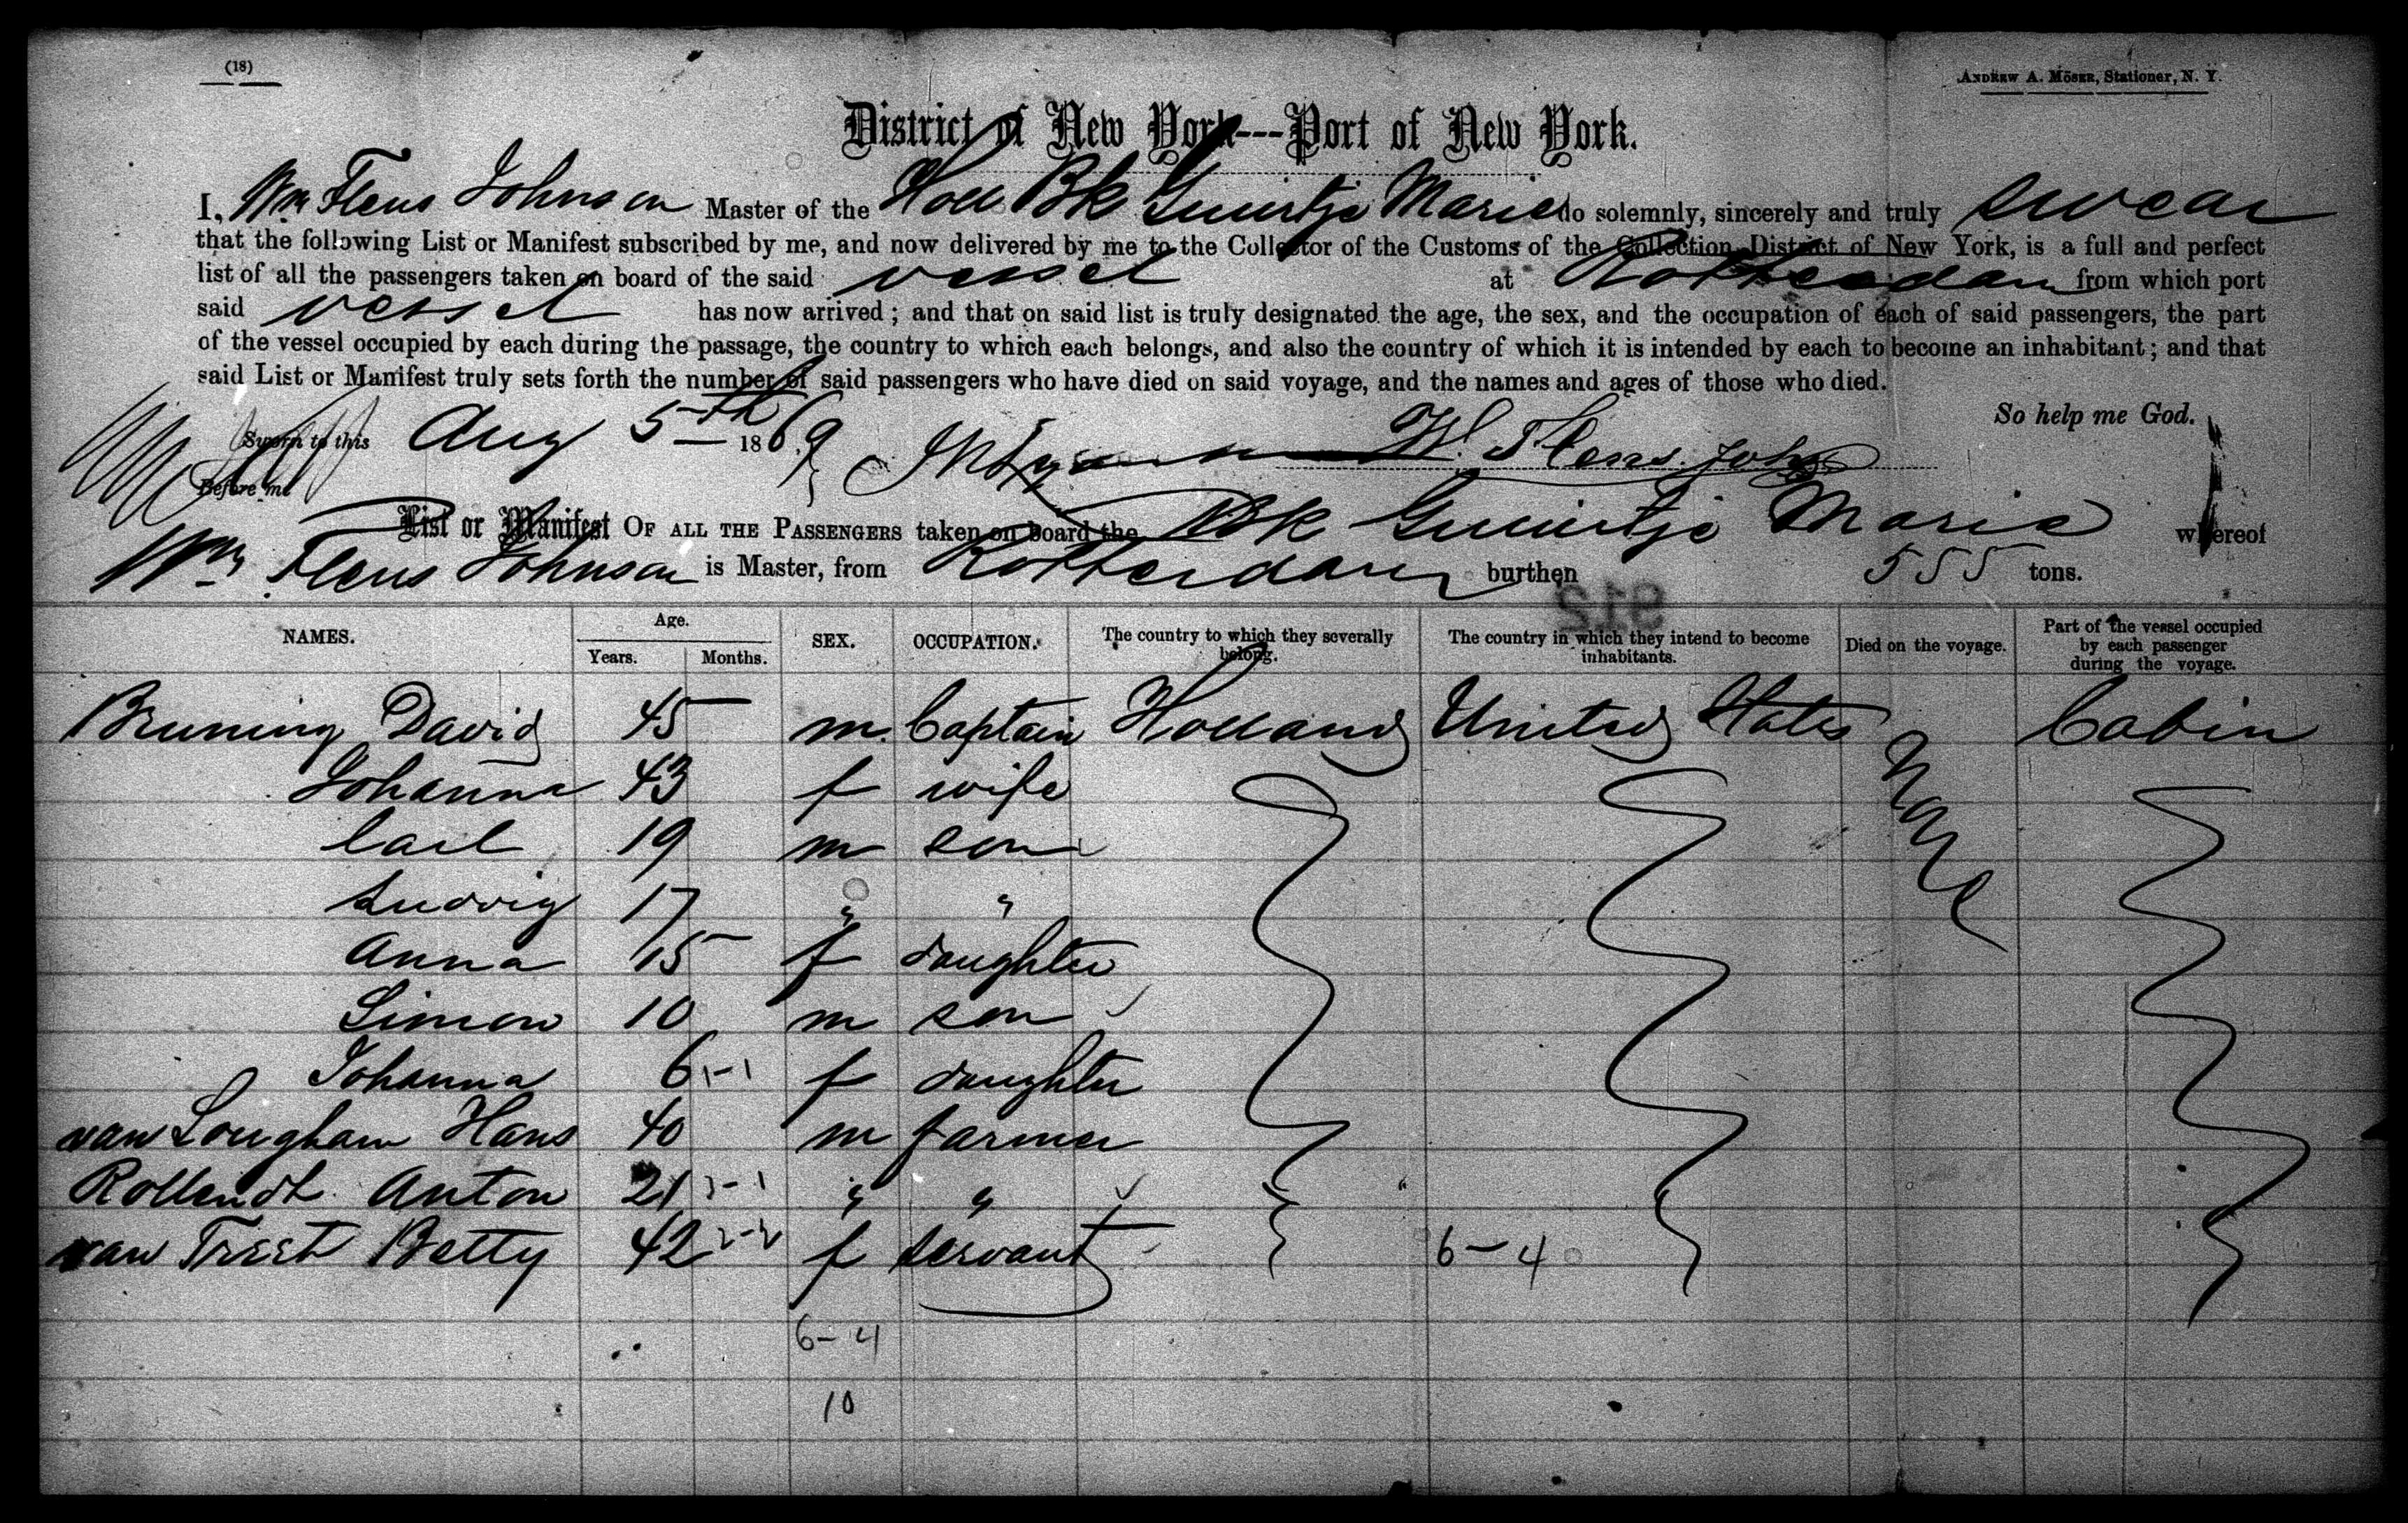 (18)
ANDREW A. MÖSER, Stationer, N. Y.
District of New York---Port of New York.
I, Wm Flens Johnson Master of the Holl Bk Geuirtje Marie do solemnly, sincerely and truly swear
that the following List or Manifest subscribed by me, and now delivered by me to the Collector of the Customs of the Collection District of New York, is a full and perfect
list of all the passengers taken on board of the said vessel at Rotterdam from which port
said vessel has now arrived; and that on said list is truly designated the age, the sex, and the occupation of each of said passengers, the part
of the vessel occupied by each during the passage, the country to which each belongs, and also the country of which it is intended by each to become an inhabitant; and that
said List or Manifest truly sets forth the number of said passengers who have died on said voyage, and the names and ages of those who died.
So help me God.
Sworn to this Aug 5th 1869 W. Flens Johns
Before me
List or Manifest OF ALL THE PASSENGERS taken on board the Bk Geuirtje Marie whereof
Wm Flens Johnson is Master, from Rotterdam burthen 555 tons.
912
NAMES. Age. Years. Months. SEX. OCCUPATION. The country to which they severally belong. The country in which they intend to become inhabitants. Died on the voyage. Part of the vessel occupied by each passenger during the voyage.
Bruning David 45 m. Captain Holland United States None Cabin
Johanna 43 f wife
Carl 19 m son
Ludwig 17 " "
Anna 15 f daughter
Simon 10 m son
Johanna 6 1-1 f daughter
van Lougham Hans 40 m farmer
Rollendt Anton 21 " "
van Trest Betty 42 f servant 6-4
6-4
10